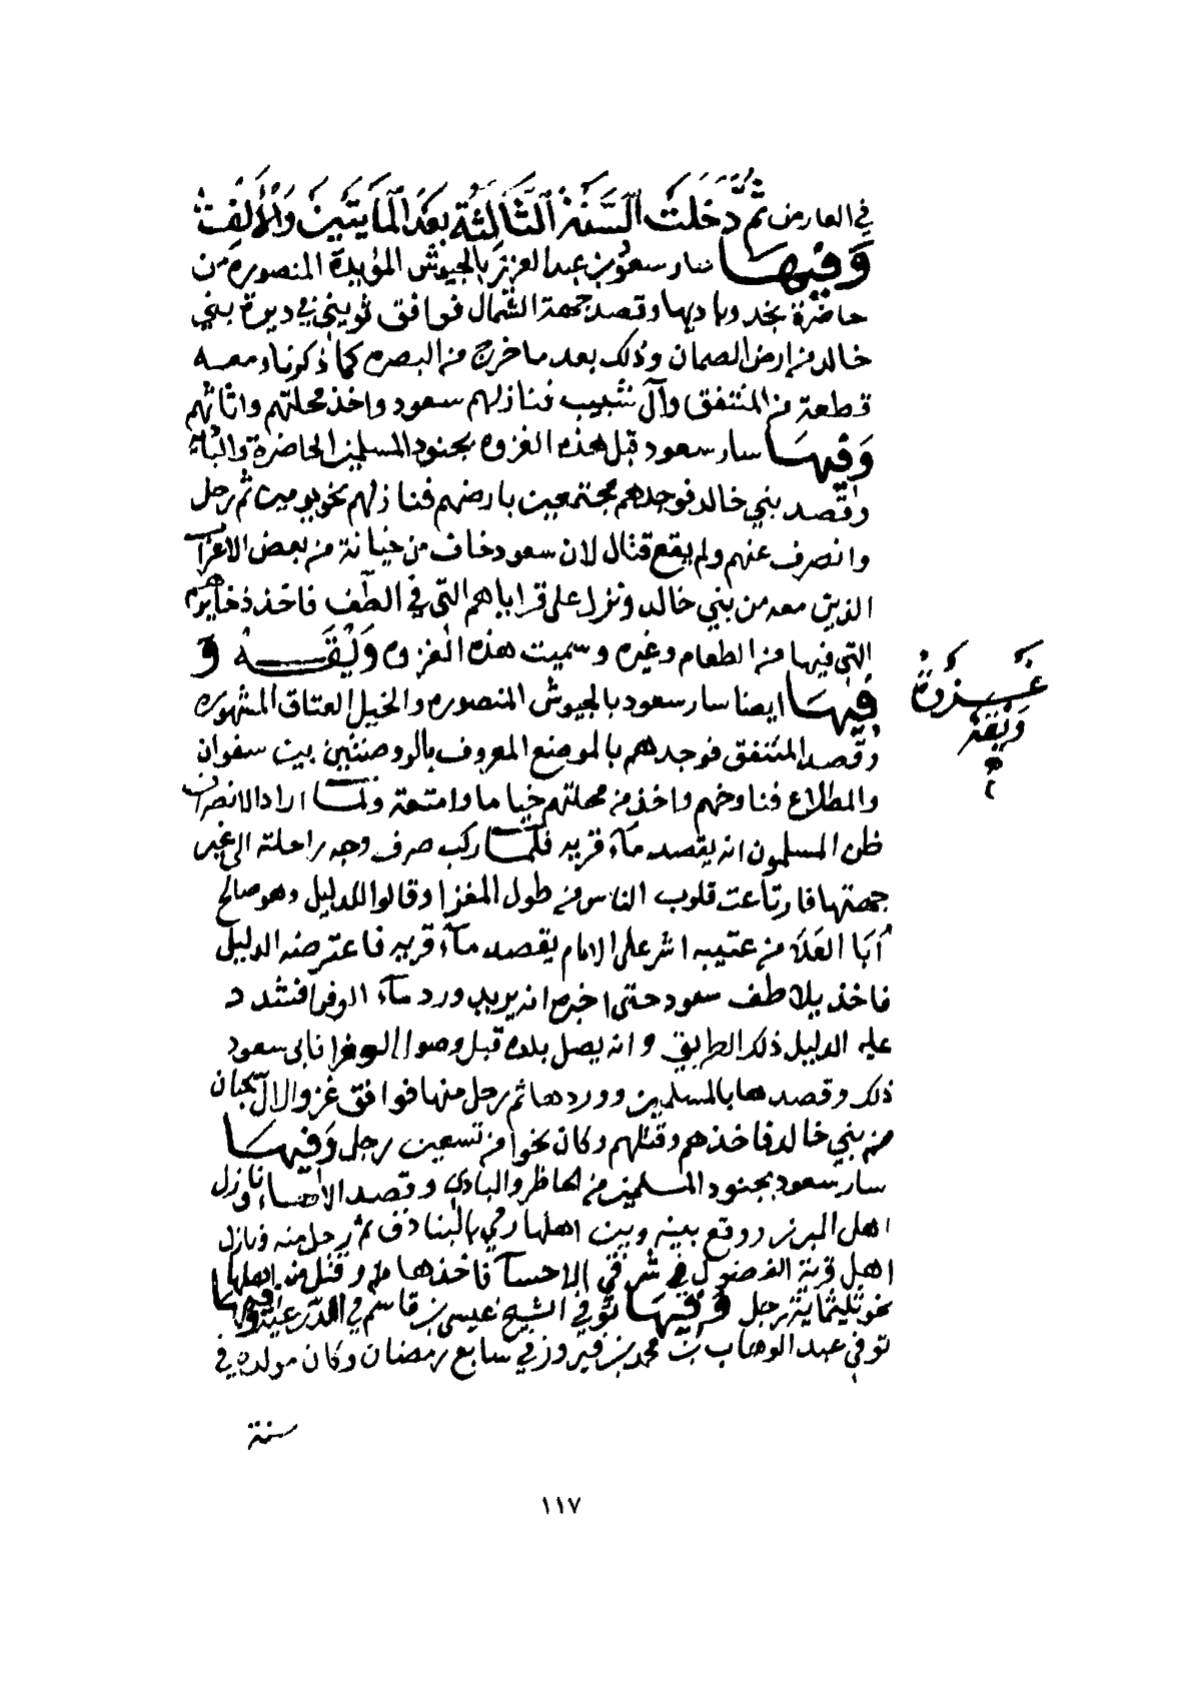 في العارض ثُمَّ دَخَلَت السَّنَة الثَّالِثَة بَعْدَ المَايَتَين وَالأَلف
وَفيهَا سار سعود بن عبد العزيز بالجيوش المؤيدة المنصوره من
حاضرة نجد وباديها وقصد جهة الشمال فوافق ثويني في ديرة بني
خالد من ارض الصمان وذلك بعد ما خرج من البصره كما ذكرنا ومعه
قطعة من المنتفق وآل شبيب فنازلهم سعود واخذ محلتهم واثاثهم
وَفيهَا سار سعود قبل هذه الغزوه بجنود المسلمين الحاضرة والباد
وقصد بني خالد فوجدهم مجتمعين بارضهم فنازلهم نحو يومين ثم رحل
وانصرف عنهم ولم يقع قتال لان سعود خاف من خيانة من بعض الاعراب
الذين معه من بني خالد ونزل على قراياهم التي في الطف فاخذ ذخايرهم
التي فيها من الطعام وغيره وسميت هذه الغزوه وَيْقَـة و
غَزوة
وَيْقَة
فيهَا ايضا سار سعود بالجيوش المنصوره والخيل العتاق المشهوره
وقصد المنتفق فوجدهم بالموضع المعروف بالروضتين بين سفوان
والمطلاع فناوخهم واخذ من محلتهم خياما وامتعة ولما اراد الانصراف
ظن المسلمون انه يقصد مآء قريب فلما ركب صرف وجه راحلته الى غير
جهتها فارتاعت قلوب الناس من طول المغزا وقالوا للدليل وهو صالح
أبا العلا من عتيبه اشر على الامام يقصد مآء قريب فاعترضه الدليل
فاخذ يلاطف سعود حتى اخبره انه يريد ورد مآء الوفرا فشدد
عليه الدليل ذلك الطريق وانه يصل بلده قبل وصول الوفرا فابى سعود
ذلك وقصدها بالمسلمين ووردها ثم رحل منها فوافق غزو لال سحبان
من بني خالد فاخذهم وقتلهم وكان نحوا من تسعين رجل وَفيهَا
سار سعود بجنود المسلمين من الحاظر والبادي وقصد الاحساء ونازل
اهل المبرز ووقع بينه وبين اهلها رمي بالبنادق ثم رحل منه ونازل
اهل قرية الفضول في شرقي الاحسآ فاخذها وقتل من اهلها
نحو ثلثماية رجل وَفيهَا توفي الشيخ عيسى بن قاسم في الدرعية وفيها
توفي عبد الوهاب بن محمد بن فيروز في سابع رمضان وكان مولده في
سنة
١١٧